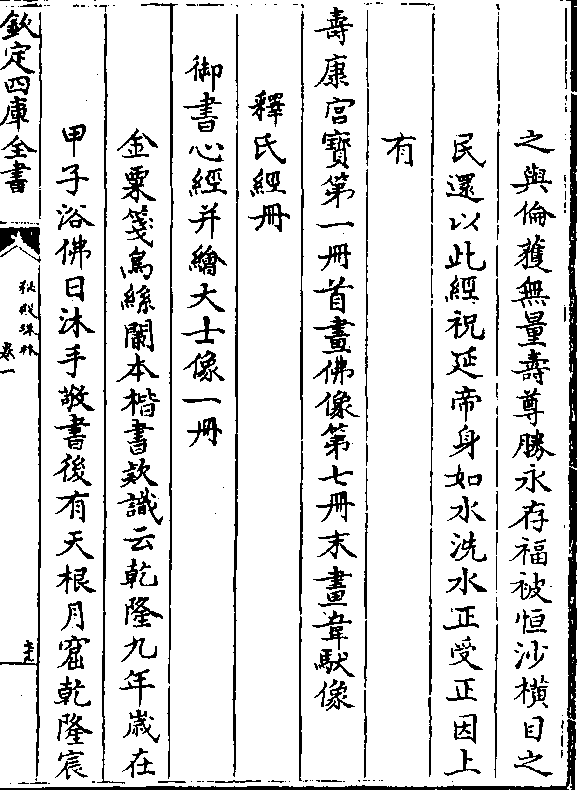 之與倫蓷無量壽尊勝永存福被恒沙橫目之
民還以此經祝延帝身如水洗水正受正因上
有
壽康宮寶第一冊首畫佛像第七冊末畫韋馱像
釋氏經冊
御書心經并繪大士像一冊
金粟箋烏絲闌本楷書款識云乾隆九年歲在
甲子浴佛日沐手敬書後有天根月窟乾隆宸
欽定四庫全書
秘殿珠林
卷一